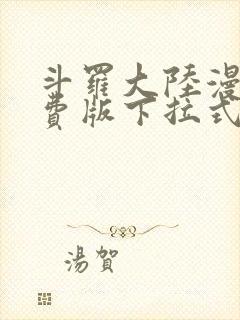 斗羅大陸漫
費版下拉式
湯賀